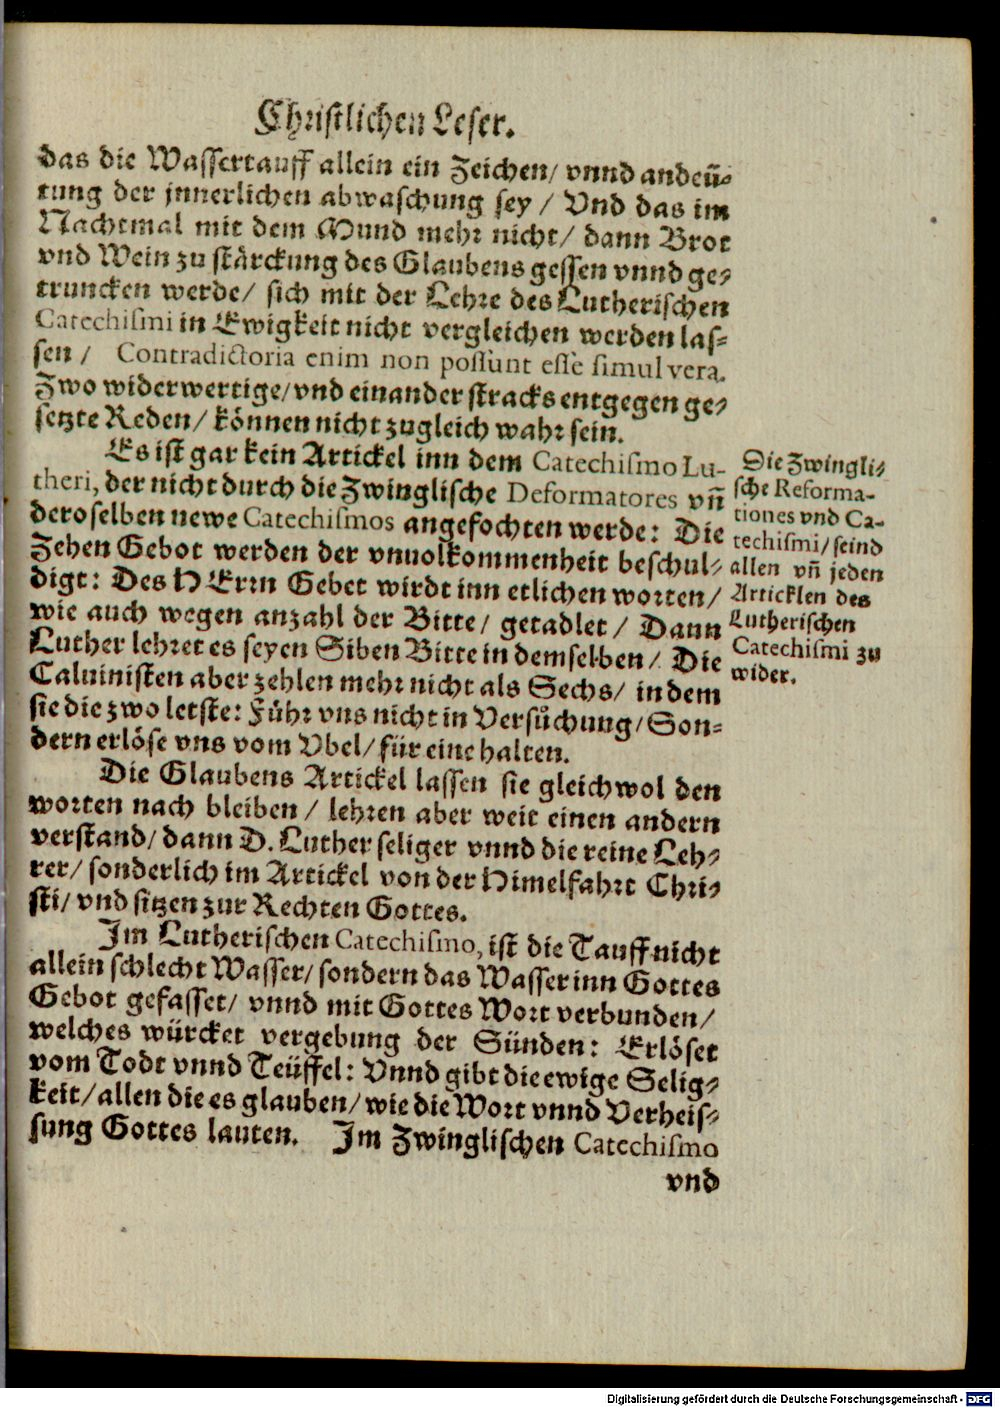 Christlichen Leser.
das die Wassertauff allein ein Zeichen/ vnnd andeũ-
tung der jnnerlichen abwaschung sey / Vnd das im
Nachtmal mit dem Mund mehr nicht/ dann Brot
vnd Wein zu stärckung des Glaubens gessen vnnd ge-
truncken werde/ sich mit der Lehre des Lutherischen
Catechiſmi in Ewigkeit nicht vergleichen werden las-
sen / Contradictoria enim non poſſunt eſſe ſimul vera.
Zwo widerwertige/ vnd einander stracks entgegen ge-
setzte Reden/ können nicht zugleich wahr sein.
Es ist gar kein Artickel inn dem Catechiſmo Lu-
theri, der nicht durch die Zwinglische Deformatores vñ
deroselben newe Catechiſmos angefochten werde: Die
Zehen Gebot werden der vnuolkommenheit beschul-
digt: Des HErrn Gebet wirdt inn etlichen worten/
wie auch wegen anzahl der Bitte/ getadlet/ Dann
Luther lehret es seyen Siben Bitte in demselben/ Die
Caluinisten aber zehlen mehr nicht als Sechs/ in dem
sie die zwo letste: Führ vns nicht in Versuͦchung/ Son-
dern erlöse vns vom Vbel/ für eine halten.
Die Glaubens Artickel lassen sie gleichwol den
worten nach bleiben/ lehren aber weit einen andern
verstand/ dann D. Luther seliger vnnd die reine Leh-
rer/ sonderlich im Artickel von der Himelfahrt Chri-
sti/ vnd sitzen zur Rechten Gottes.
Im Lutherischen Catechiſmo, ist die Tauff nicht
allein schlecht Wasser/ sondern das Wasser inn Gottes
Gebot gefasset/ vnnd mit Gottes Wort verbunden/
welches würcket vergebung der Sünden: Erlöset
vom Todt vnnd Teüffel: Vnnd gibt die ewige Selig-
keit/ allen die es glauben/ wie die Wort vnnd Verheis-
sung Gottes lauten. Im Zwinglischen Catechiſmo
vnd
Die Zwingli-
sche Reforma-
tiones vnd Ca-
techiſmi/ seind
allen vñ jeden
Articklen des
Lutherischen
Catechiſmi zu
wider.
Digitalisierung gefördert durch die Deutsche Forschungsgemeinschaft - DFG